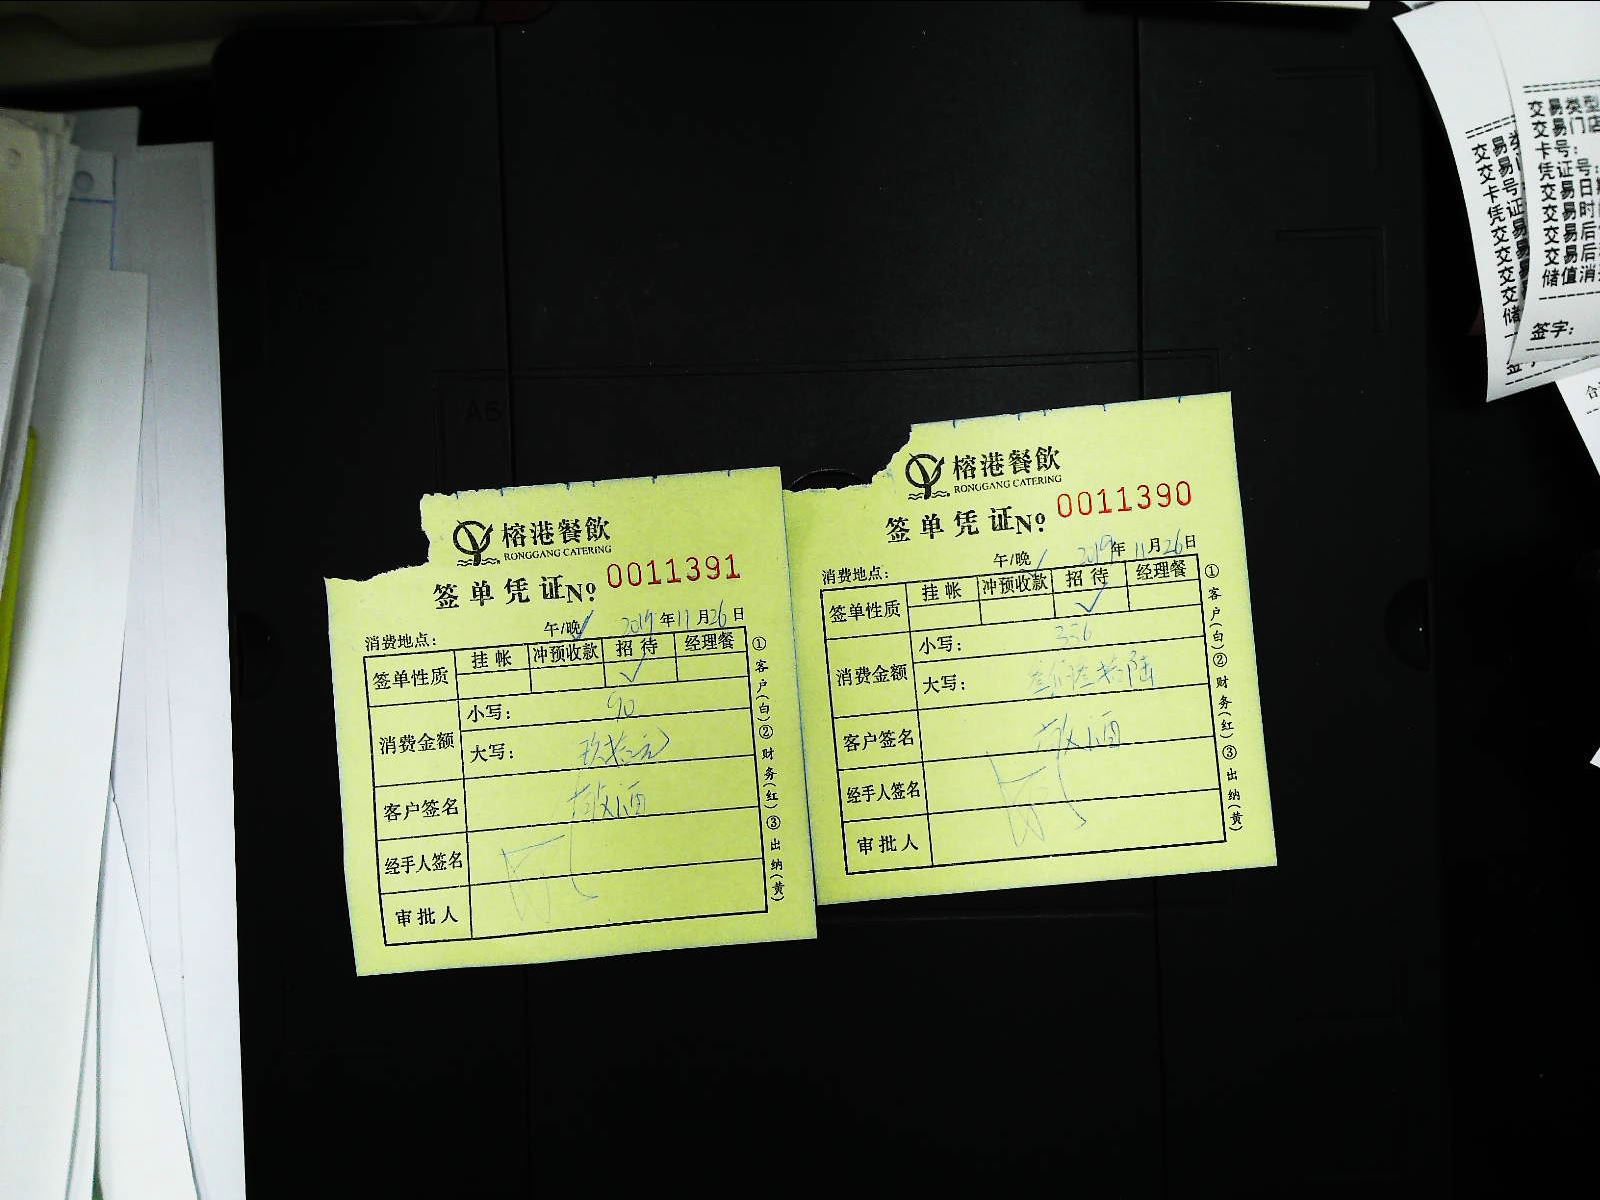 榕港餐飲
RONGGANG CATERING
签单凭证No 0011391
消费地点: 午/晚 2019年11月26日
签单性质 挂帐 冲预收款 招待 经理餐
消费金额 小写: 90
大写: 玖拾元
客户签名 敬酒
经手人签名
审批人
①客户(白)②财务(红)③出纳(黄)
榕港餐飲
RONGGANG CATERING
签单凭证No 0011390
消费地点: 午/晚 2019年11月26日
签单性质 挂帐 冲预收款 招待 经理餐
消费金额 小写: 356
大写:
客户签名 敬酒
经手人签名
审批人
①客户(白)②财务(红)③出纳(黄)
交易类型
交易门店
卡号:
凭证号:
交易日期
交易时
交易后
交易后
储值消
签字:
A5